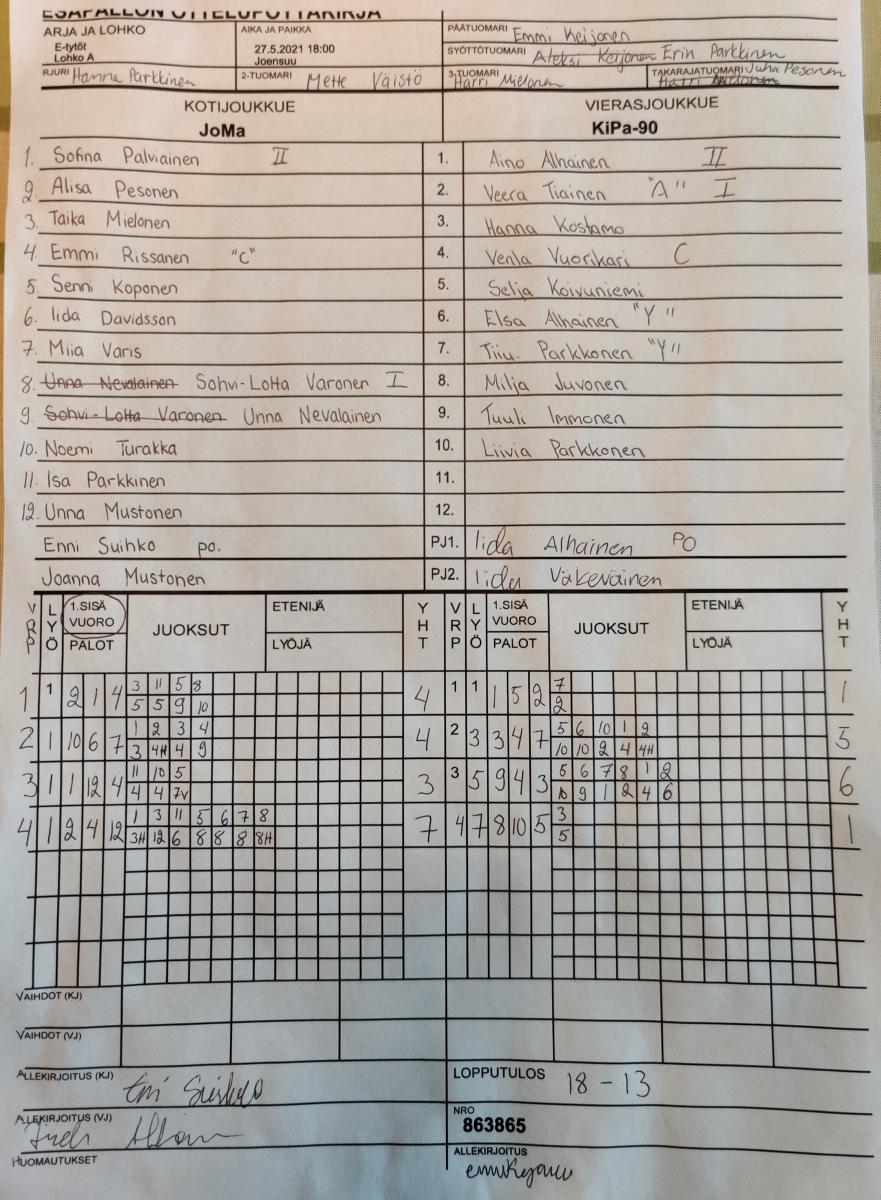 ESÄPALLON OTTELUPÖYTÄKIRJA
ARJA JA LOHKO
E-tytöt
Lohko A
AIKA JA PAIKKA
27.5.2021 18:00
Joensuu
PÄÄTUOMARI Emmi Keijonen
SYÖTTÖTUOMARI Aleksi Keijonen Erin Parkkinen
RJURI Hanna Parkkinen
2-TUOMARI Mette Väistö
3-TUOMARI Harri Mielonen
TAKARAJATUOMARI Juha Pesonen
Harri Mielonen
KOTIJOUKKUE
JoMa
VIERASJOUKKUE
KiPa-90
1. Sofina Palviainen II 1. Aino Alhainen II
2. Alisa Pesonen 2. Veera Tiainen "A" I
3. Taika Mielonen 3. Hanna Kostamo
4. Emmi Rissanen "C" 4. Venla Vuorikari C
5. Senni Koponen 5. Selja Koivuniemi
6. Iida Davidsson 6. Elsa Alhainen "Y"
7. Miia Varis 7. Tiiu Parkkonen "Y"
8. Unna Nevalainen Sohvi-Lotta Varonen I 8. Milja Juvonen
9. Sohvi-Lotta Varonen Unna Nevalainen 9. Tuuli Immonen
10. Noemi Turakka 10. Liivia Parkkonen
11. Isa Parkkinen 11.
12. Unna Mustonen 12.
Enni Suihko po. PJ1. Iida Alhainen PO
Joanna Mustonen PJ2. Iida Väkeväinen
VRP LYÖ 1.SISÄ VUORO PALOT JUOKSUT ETENIJÄ LYÖJÄ YHT VRP LYÖ 1.SISÄ VUORO PALOT JUOKSUT ETENIJÄ LYÖJÄ YHT
1 1 2 1 4 3 11 5 8 4 1 1 1 5 2 7 1
5 5 9 10 2
2 1 10 6 7 1 2 3 4 4 2 3 3 4 7 5 6 10 1 2 5
3 4H 4 9 10 10 2 4 4H
3 1 1 12 4 11 10 5 3 3 5 9 4 3 5 6 7 8 1 2 6
4 4 7V 9 1 2 4 6
4 1 2 4 12 1 3 11 5 6 7 8 7 4 7 8 10 5 3 1
3H 12 6 8 8 8 8H 5
VAIHDOT (KJ)
VAIHDOT (VJ)
ALLEKIRJOITUS (KJ)
LOPPUTULOS 18 - 13
ALLEKIRJOITUS (VJ)
NRO
863865
HUOMAUTUKSET
ALLEKIRJOITUS